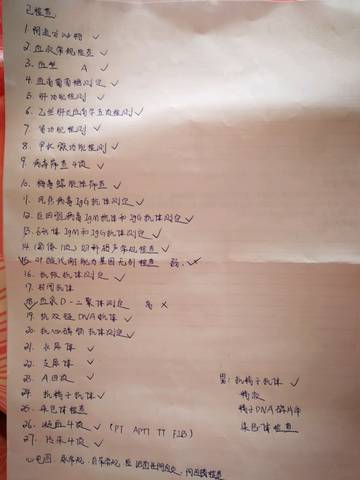 已检查
1. 阴道分泌物 ✓
2. 血尿常规检查 ✓
3. 血型 A ✓
4. 血清葡萄糖测定 ✓
5. 肝功能检测 ✓
6. 乙型肝炎血清学五项检测 ✓
7. 肾功能检测 ✓
8. 甲状腺功能检测 ✓
9. 病毒筛查4项 ✓
10. 梅毒螺旋体筛查 ✓
11. 风疹病毒IgG抗体测定 ✓
12. 巨细胞病毒IgM抗体和IgG抗体测定 ✓
13. 弓形体IgM和IgG抗体测定 ✓
14. 妇科超声常规检查 ✓
15. 叶酸代谢能力基因检测
16. 抗核抗体测定 ✓
17. 封闭抗体
18. 血浆D-二聚体测定 高 ×
19. 抗双链DNA抗体 ✓
20. 抗心磷脂抗体测定 ✓
21. 衣原体 ✓
22. 支原体 ✓
23. A四项 ✓ 男: 抗精子抗体 ✓
24. 抗精子抗体 ✓ 精液
25. 染色体检查 精子DNA碎片率
26. 凝血4项 ✓ (PT APTT TT FIB) 染色体检查
27. 传染4项 ✓
心电图、尿常规、白带常规